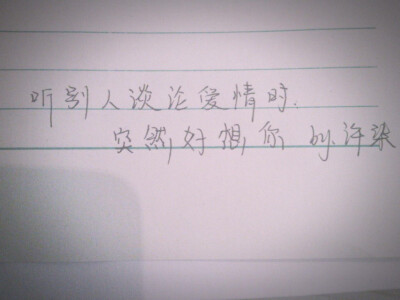 听别人谈论爱情时.
突然,好想,你 by.许染